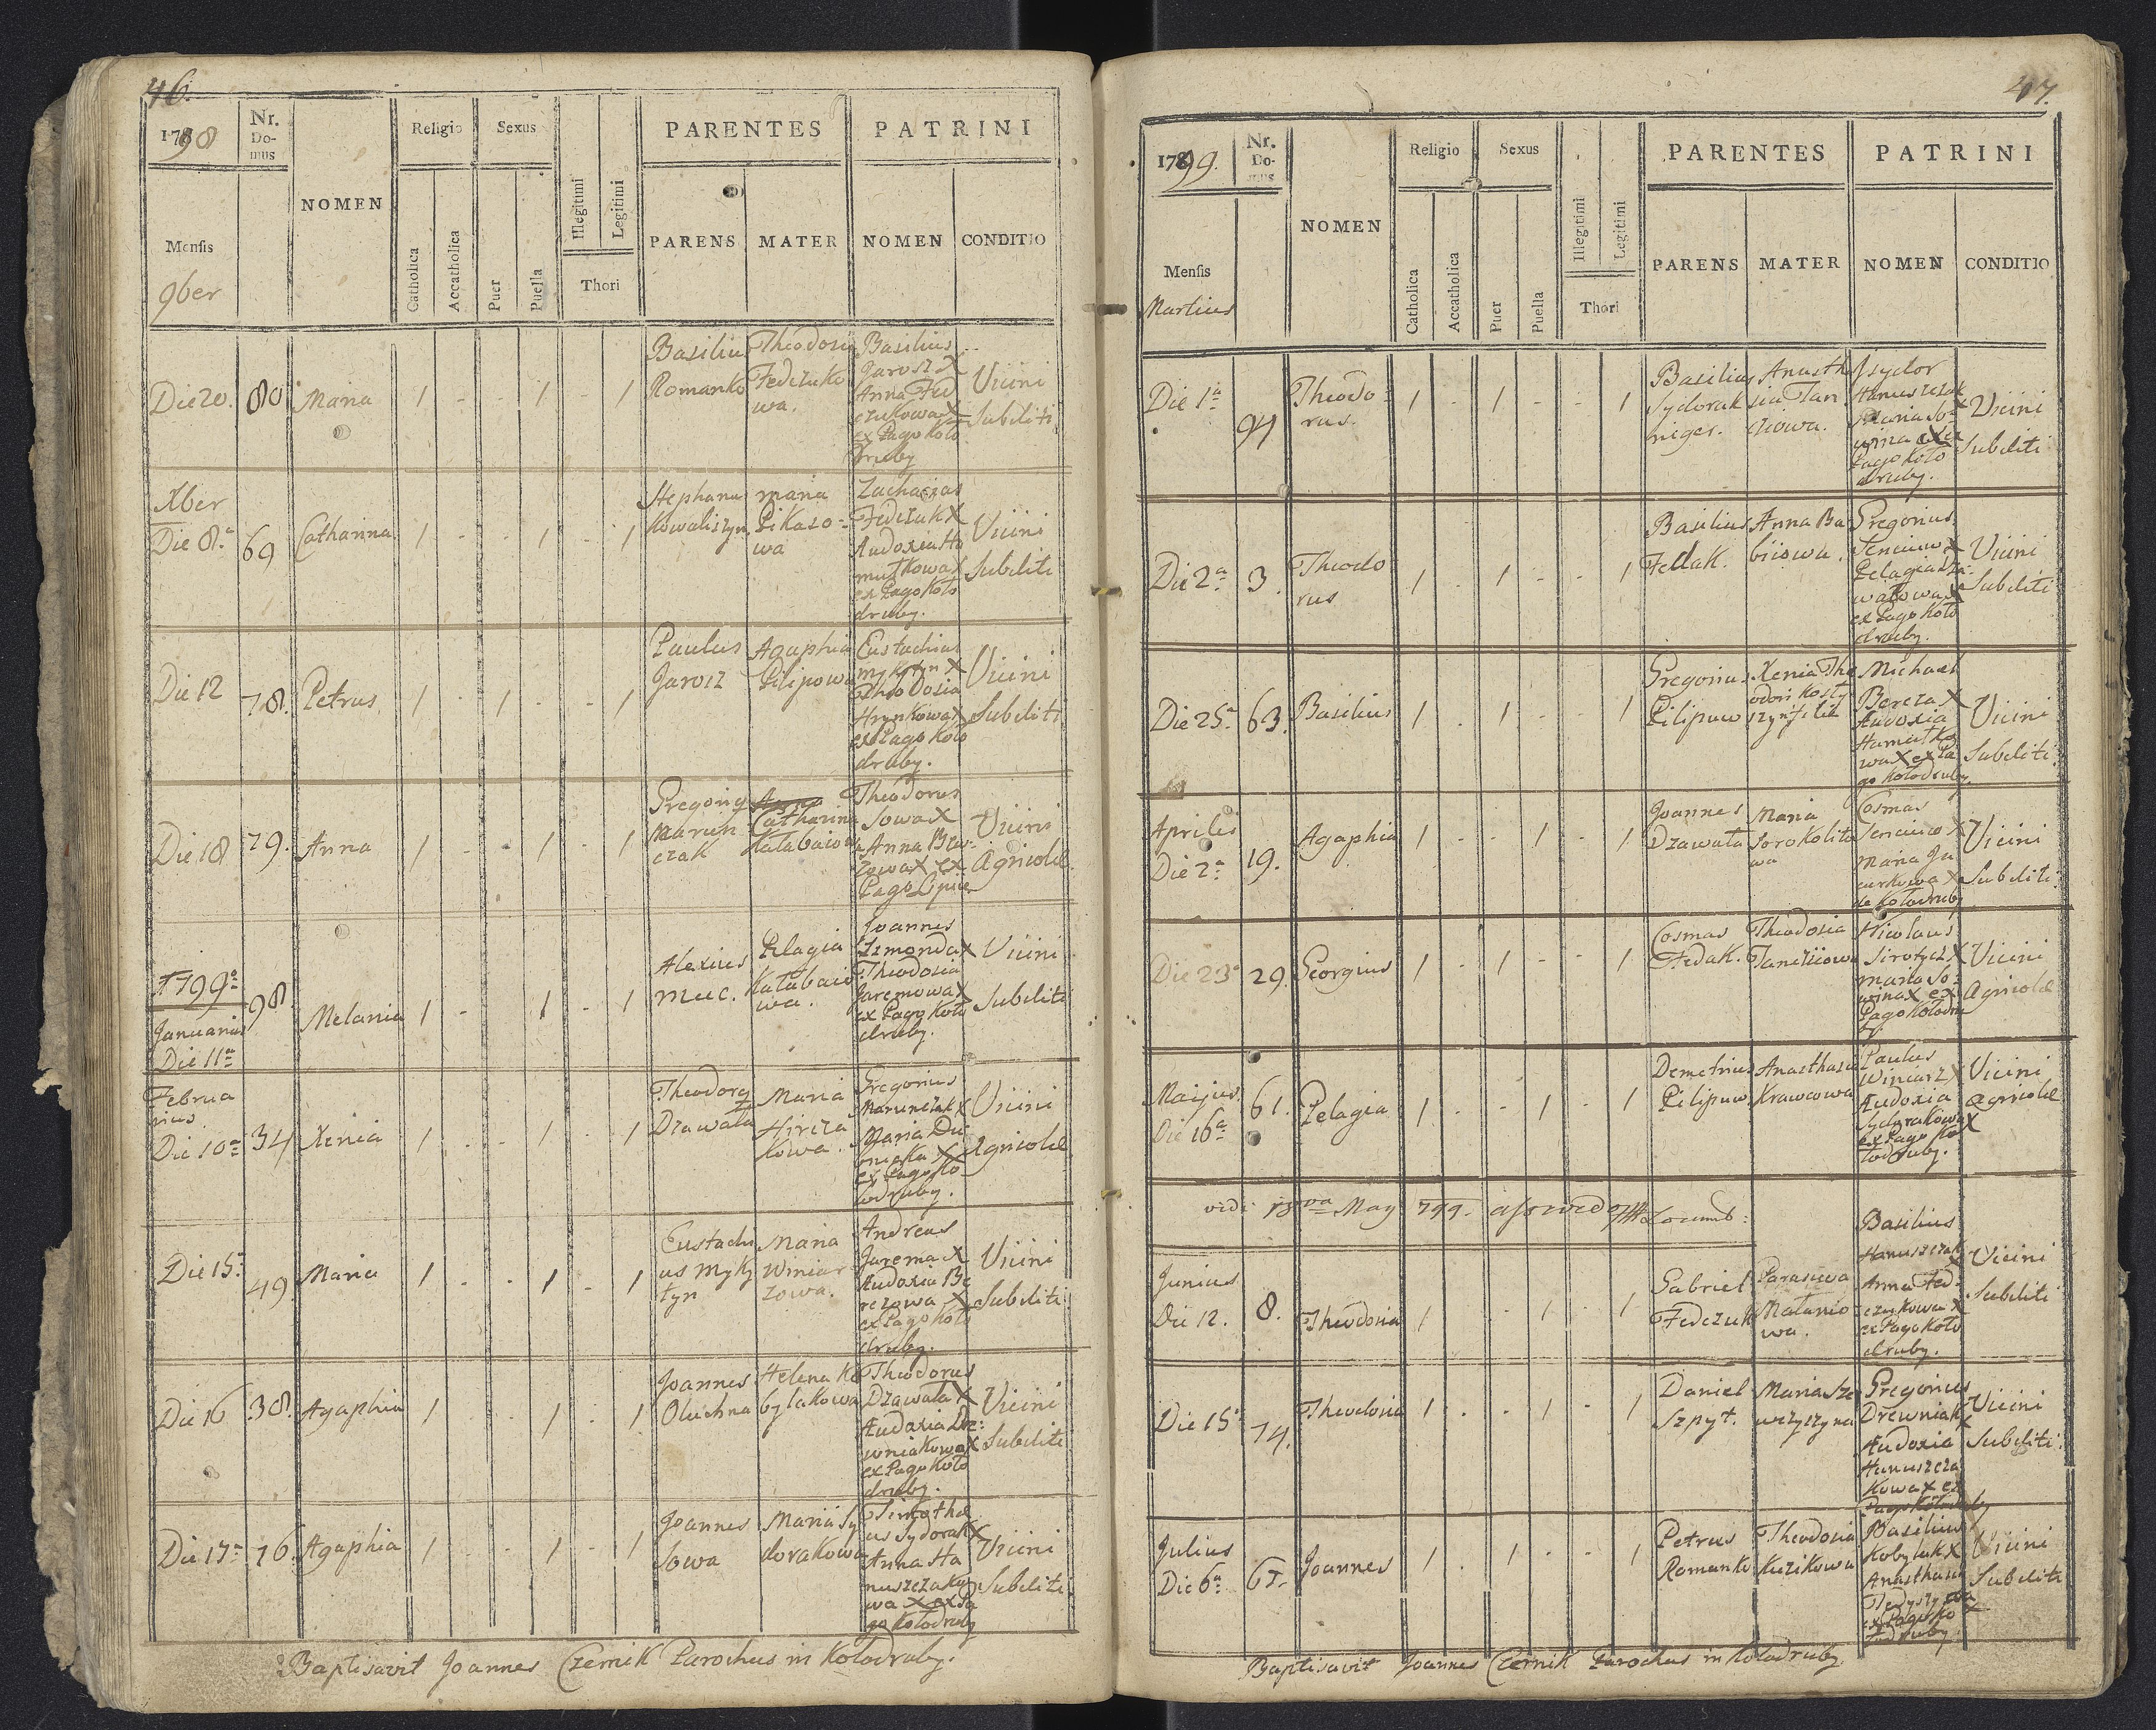 46.
1798
Nr. Do-mus
NOMEN
Religio
Sexus
PARENTES
PATRINI
Mensis
9ber
Catholica
Accatholica
Puer
Puella
Illegitimi
Legitimi
Thori
PARENS
MATER
NOMEN
CONDITIO
Die 20. 80 Maria 1 - - 1 - 1
Basilius
Romanko
Theodosia
Fedczuko
wa.
Basilius
Jarosz X
Anna Fed
czukowa X
ex Pago Koło
druby
Vicini
Subditi
Xber
Die 8.a 69 Catharina 1 - - 1 - 1
Stephanus
Kowaliszyn
Maria
Pikaso-
wa
Zacharias
Fedczuk X
Audoxia Ho
mutkowa X
ex Pago Koło
druby.
Vicini
Subditi
Die 12 78. Petrus 1 - 1 - - 1
Paulus
Jarosz
Agaphia
Pilipowa
Eustachius
Mykytyn X
Theodosia
Hrynkowa X
ex Pago Koło
druby.
Vicini
Subditi
Die 18 79. Anna 1 - - 1 - 1
Gregorig
Marun
czak
Catharina
Kałabaiowa
Theodorus
Sowa X
Anna
ex
Pago Lipice
Vicini
Agricolæ
1799o
Januarius
Die 11a
98. Melania 1 - 1 - 1
Alexius
Muc.
Pelagia
Kałabaio
wa.
Joannes
Dzmonda X
Theodosia
Jaremowa X
ex Pago Koło
druby.
Vicini
Subditi
Februa
rius
Die 10a 34 Xenia 1 - - 1 - 1
Theodorg
Dzawała
Maria
Hircza
kowa.
Gregorius
Marunczak X
Maria
ex Pago Ko
łodruby.
Vicini
Agricolæ
Die 15a 49. Maria 1 - - 1 - 1
Eustachi
us Myky
tyn
Maria
Winiar
zowa.
Andreas
Jarema X
Audoxia Be
rezowa X
ex Pago Koło
druby.
Vicini
Subditi
Die 16 38. Agaphia 1 - - 1 - 1
Joannes
Oluchna
Helena Ko
bylakowa
Theodorus
Dzawała X
Audoxia Dre
wniakowa X
ex Pago Koło
druby.
Vicini
Subditi
Die 17a 76. Agaphia 1 - - 1 - 1
Joannes
Sowa
Maria Sy
dorakowa
Timothe
us Sydorak X
Anna Ha
nuszczako
wa X ex Pa
go Kołodruby
Vicini
Subditi
Baptisavit Joannes Czernik Parochus in Kołodruby.
47.
1799.
Nr. Do-mus
NOMEN
Religio
Sexus
PARENTES
PATRINI
Mensis
Martius
Catholica
Accatholica
Puer
Puella
Illegitimi
Legitimi
Thori
PARENS
MATER
NOMEN
CONDITIO
Die 1a 94 Theodo-
rus. 1 - 1 - - 1
Basilius
Sydorak
niger.
Anasth
sia Tan
cziowa.
Isydor
Hanuszczak
Maria So-
wina X ex
Pago Koło
druby.
Vicini
Subditi
Die 2a 3. Theodo
rus 1 - 1 - - 1
Basilius
Fedak.
Anna Ba
biiowa.
Gregorius
Senciuw X
Pelagia Dza-
wałowa X
ex Pago Koło
druby.
Vicini
Subditi
Die 25a 63. Basilius 1 - 1 - - 1
Gregorius
Pilipuw
Xenia The
odori Kosty
szyn filia
Michael
Bereza X
Audoxia
Hamutko
wa X ex Pa
go Kołodruby.
Vicini
Subditi
Aprilis
Die 2a 19. Agaphia 1 - - 1 - 1
Joannes
Dzawała
Maria
Sorokolito
wa
Cosmas
Senciuw X
Maria Ja
curkowa X
de Kołodruby
Vicini
Subditi
Die 23a 29. Georgius 1 - 1 - - 1
Cosmas
Fedak.
Theodosia
Tancziiowa
Nicolaus
Sirotycz X
Maria So-
wina X ex
Pago Kołodru
by.
Vicini
Agricolæ
Maijus.
Die 16a 61. Pelagia 1 - - 1 - 1
Demetrius
Pilipuw.
Anasthasia
Krawcowa
Paulus
Winiarz X
Audoxia
Sydorakowa X
ex Pago Ko
łodruby.
Vicini
Agricolæ
vidi May 799.
Junius
Die 12. 8. Theodosia 1 - 1 - 1
Gabriel
Fedczuk
Parascewa
Matanio
wa.
Basilius
Hanuszczak X
Anna Fed-
czukowa X
ex Pago Koło
druby.
Vicini
Subditi
Die 15a 74. Theodosia 1 - - 1 - 1
Daniel
Szpyt.
Maria Sze
wczyszyna
Gregorius
Drewniak X
Audoxia
Hanuszcza
kowa X ex
Pago Kołodruby
Vicini
Subditi.
Julius
Die 6a 67. Joannes 1 - 1 - - 1
Petrus
Romanko
Theodosia
Kuzikowa
Basilius
Kobylak X
Anasthasia
ex Pago Ko
łodruby.
Vicini
Subditi
Baptisavit Joannes Czernik Parochus in Kołodruby